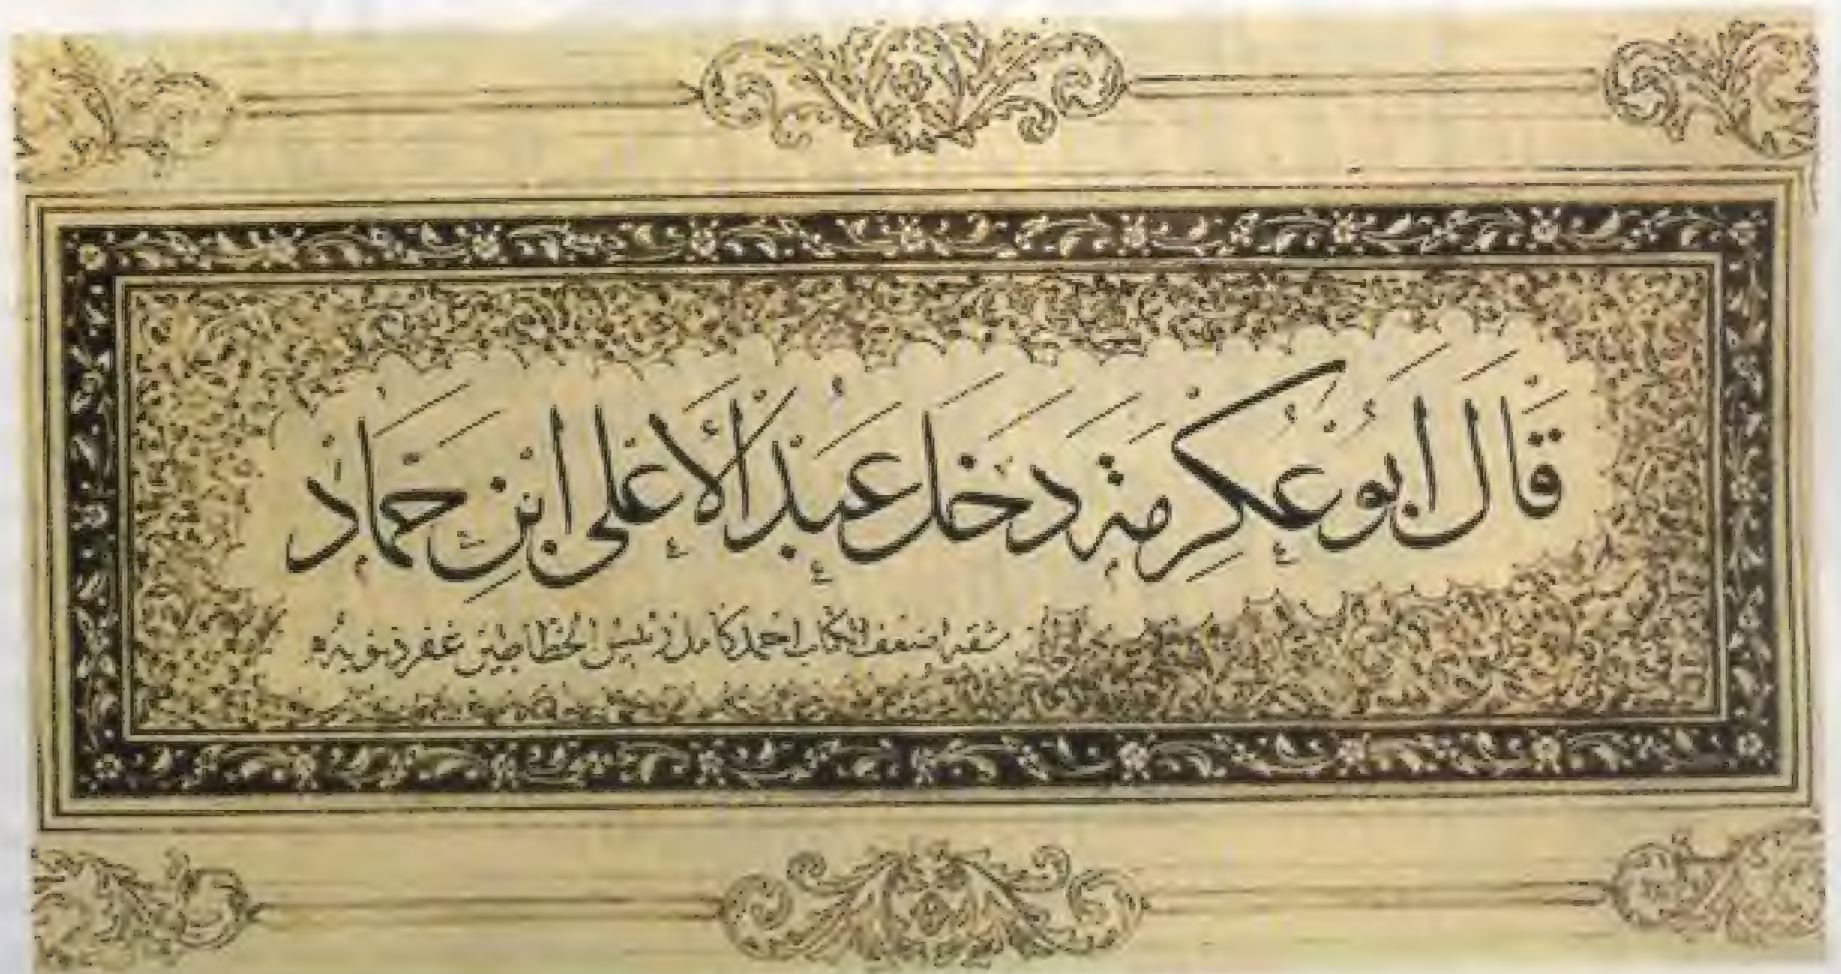 قَالَ اَبُو عِكْرِمَةَ دَخَلَ عَبْدُ الْأَعْلَى ابْنِ حَمَّاد
مشقه اضعف الكتاب احمد كامل رئيس الخطاطين غفر ذنوبه